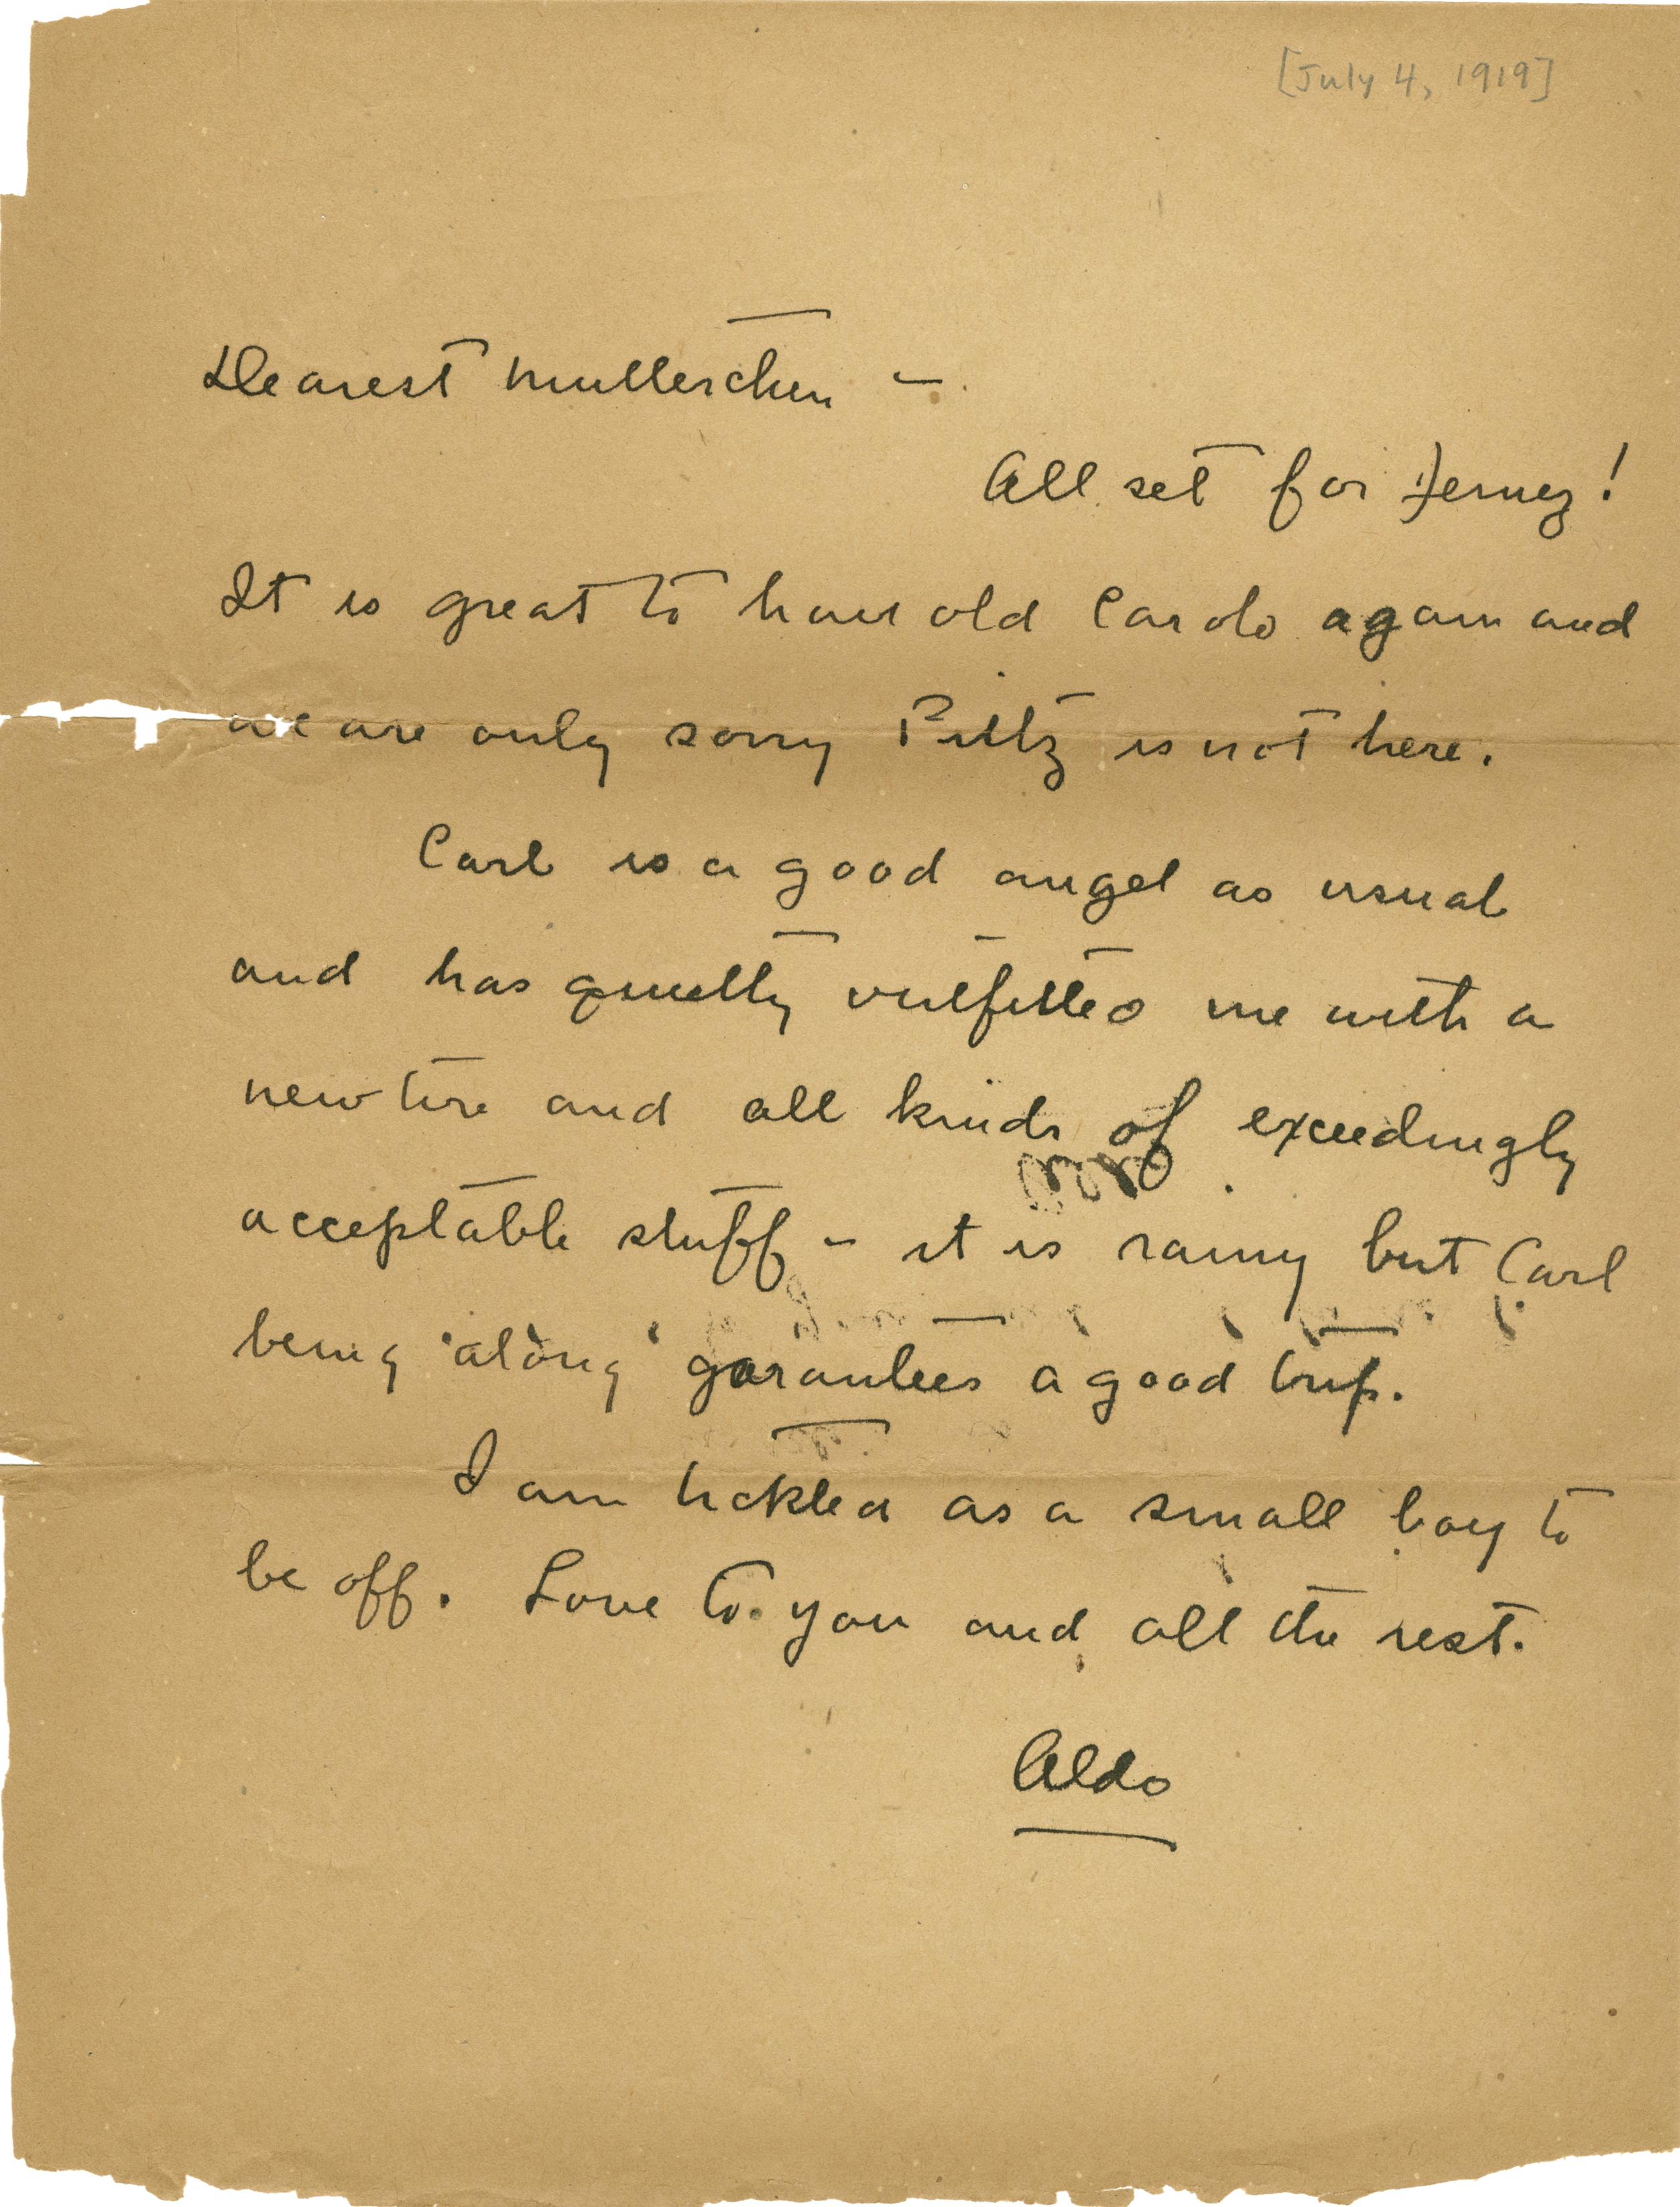 [July 4, 1919]
Dearest Mutterchen –
All set for Jemez!
It is great to have old Carolo again and
we are only sorry Fritz is not here.
Carl is a good angel as usual
and has quietly outfitted me with a
new tire and all kinds of exceedingly
acceptable stuff – it is rainy but Carl
being 'along' garantees a good trip.
I am tickled as a small boy to
be off. Love to you and all the rest.
Aldo